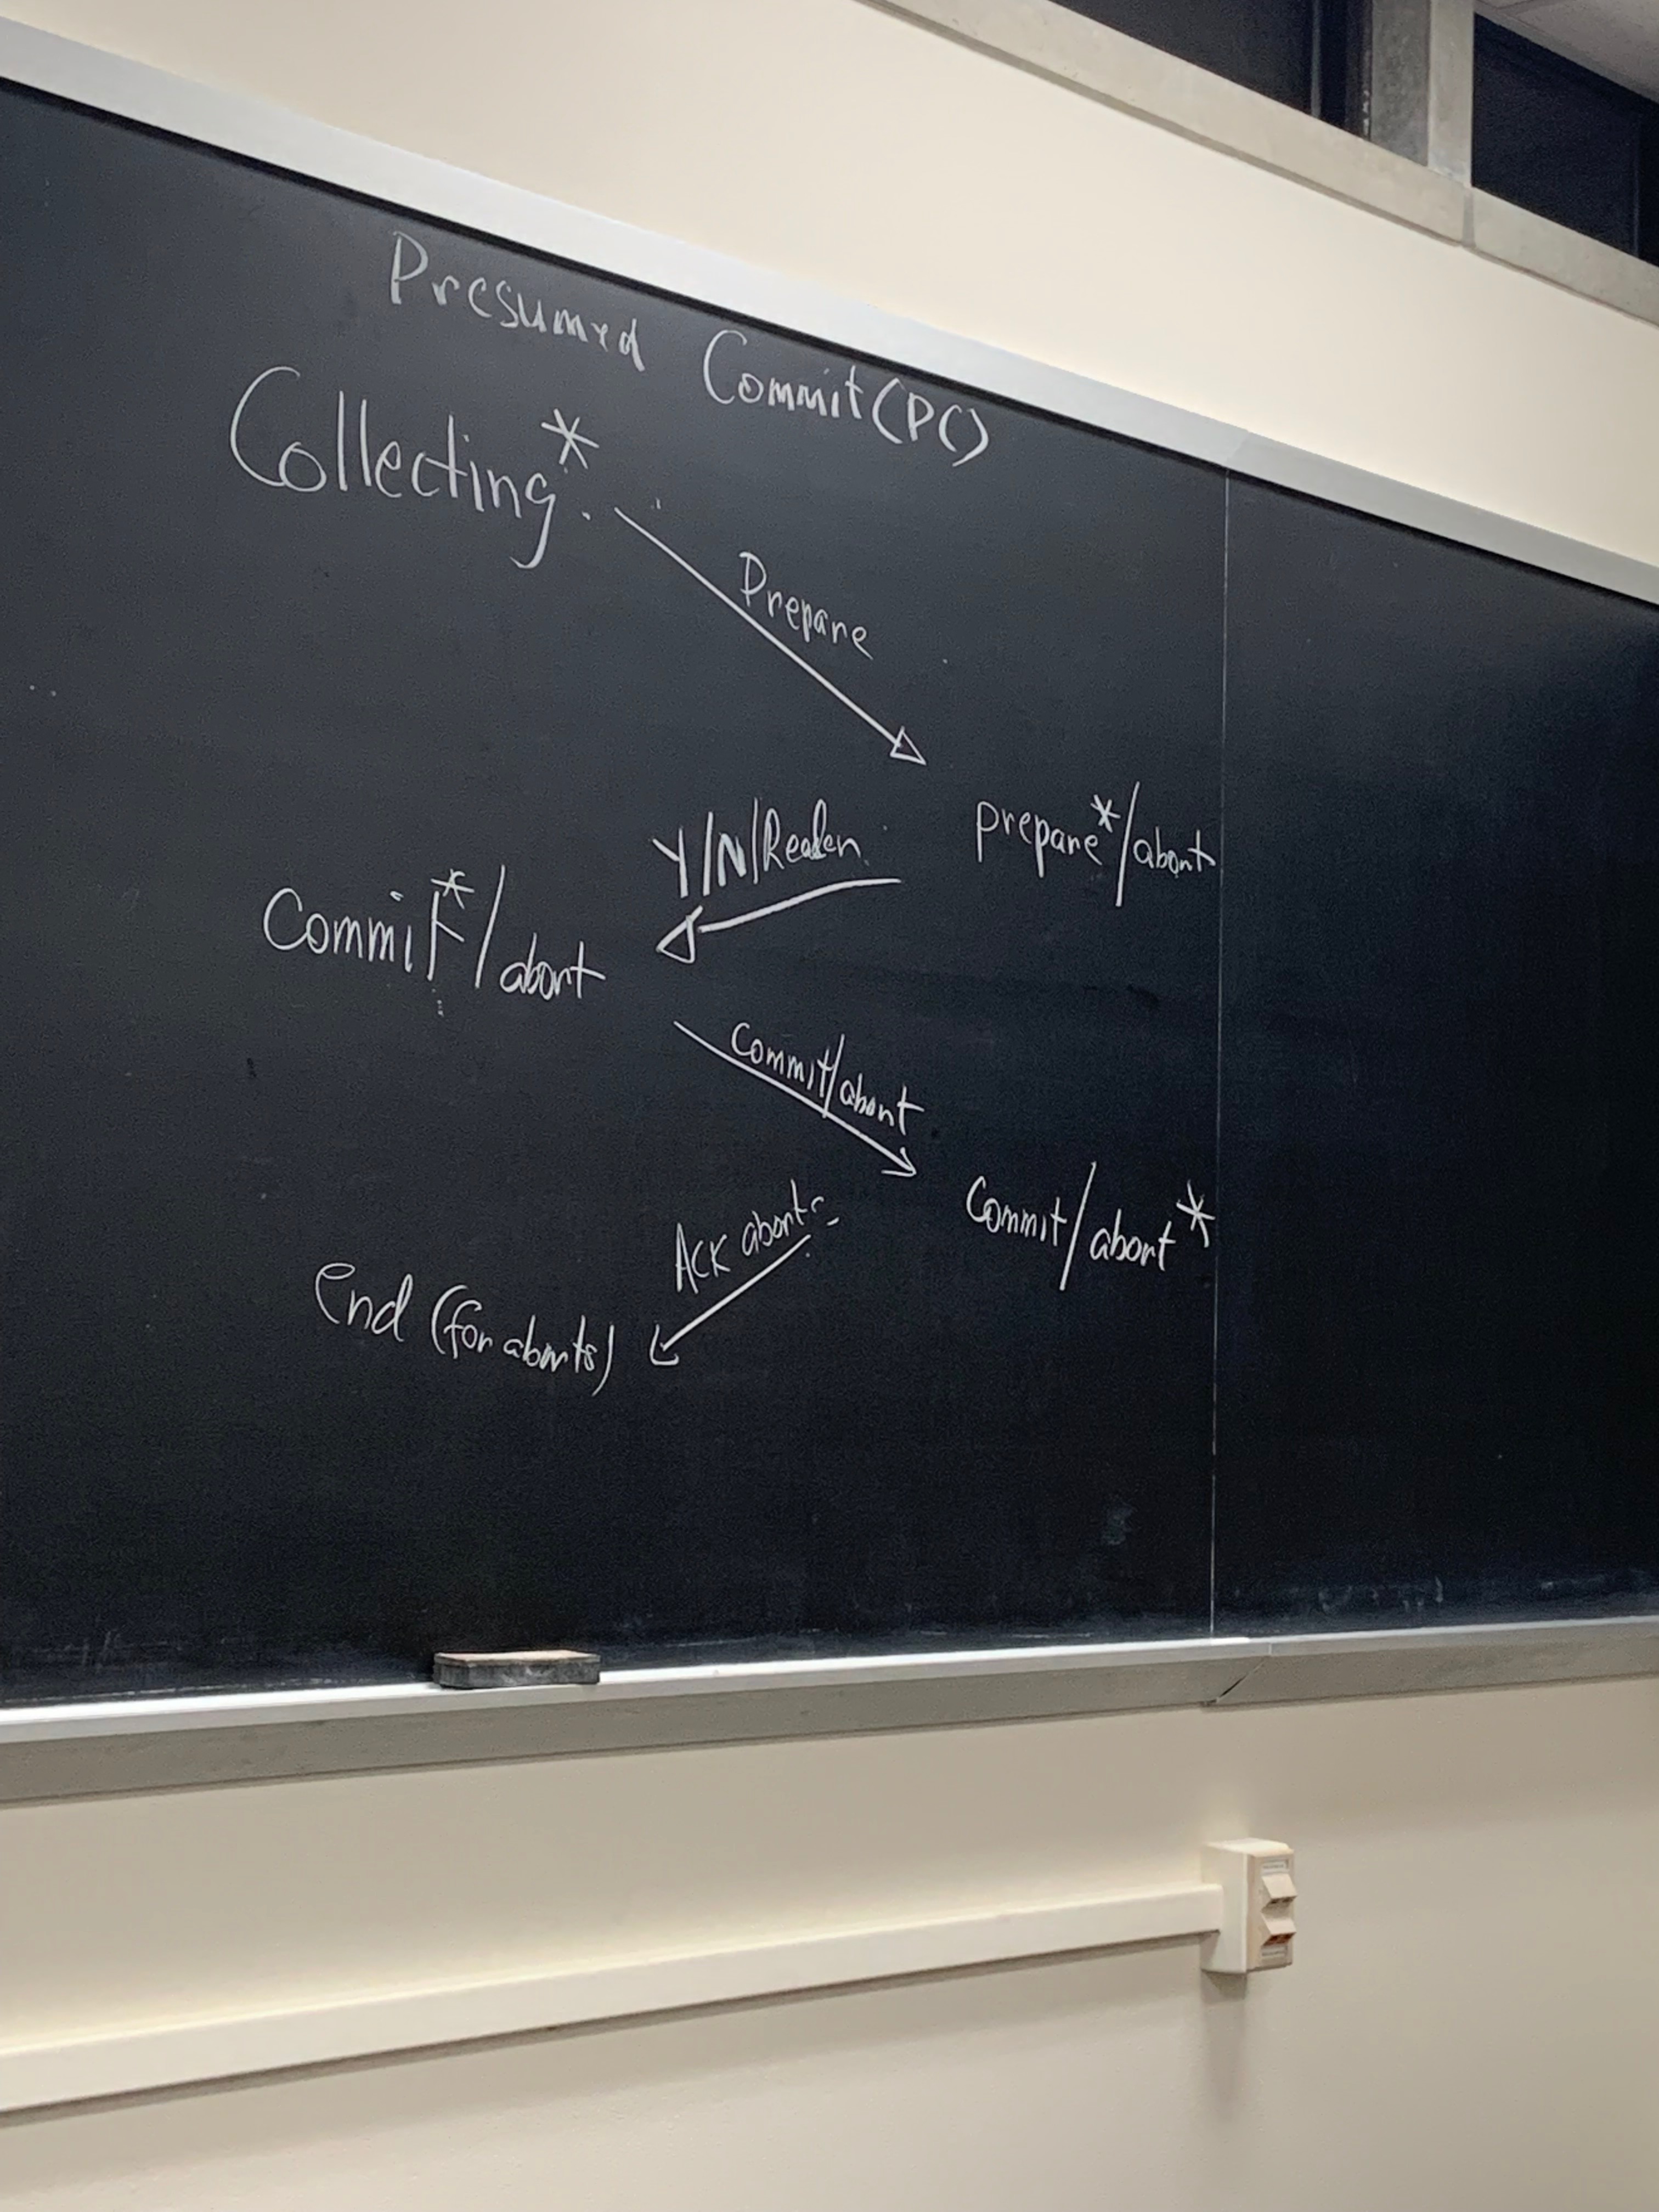 Presumed Commit (PC)
Collecting*
Prepare
prepare*/abort
Y/N/Reader
Commit*/abort
Commit/abort
Commit/abort*
Ack aborts
End (for aborts)